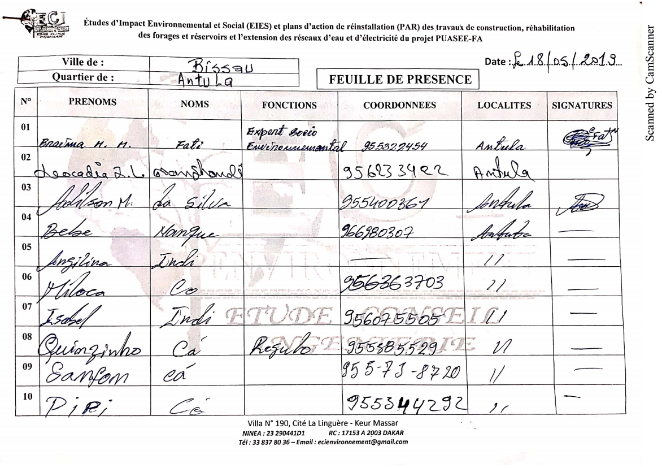 Études d'Impact Environnemental et Social (EIES) et plans d'action de réinstallation (PAR) des travaux de construction, réhabilitation
des forages et réservoirs et l'extension des réseaux d'eau et d'électricité du projet PUASEE-FA
Ville de : Bissau
Quartier de : Antula
Date : Le 18/05/2019
FEUILLE DE PRESENCE
N° PRENOMS NOMS FONCTIONS COORDONNEES LOCALITES SIGNATURES
01 Braima M. M. Fati Expert Socio Environnemental 955322454 Antula
02 Leocadia 956233422 Antula
03 Adilson M. da Silva 955400361 Antula
04 Bebe Nanque 966980307 Antula —
05 Angilina Indi — // —
06 Miloca Co 956363703 // —
07 Isabel Indi 956075505 // —
08 Quinzinho Cá Regulo 955385529 // —
09 Sanfom cá 955-79-8720 // —
10 PiRi Cá 955344292 // —
ECI
ENVIRONNEMENT
ETUDE CONSEIL
INGENIERIE
Villa N° 190, Cité La Linguère - Keur Massar
NINEA : 23 290441D1 RC : 17153 A 2003 DAKAR
Tél : 33 837 80 36 – Email : ecienvironnement@gmail.com
Scanned by CamScanner